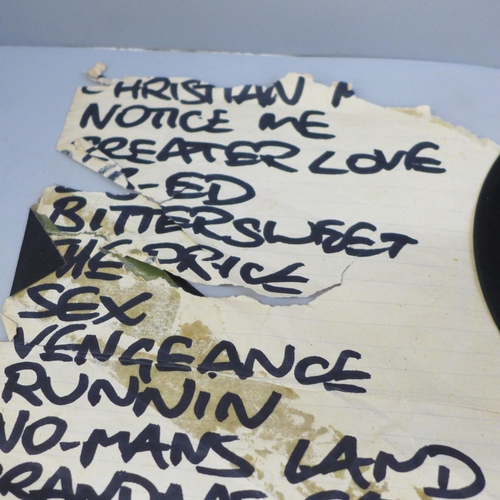 CHRISTIAN
NOTICE ME
GREATER LOVE
-ED
BITTERSWEET
THE PRICE
SEX
VENGEANCE
RUNNIN
NO-MANS LAND